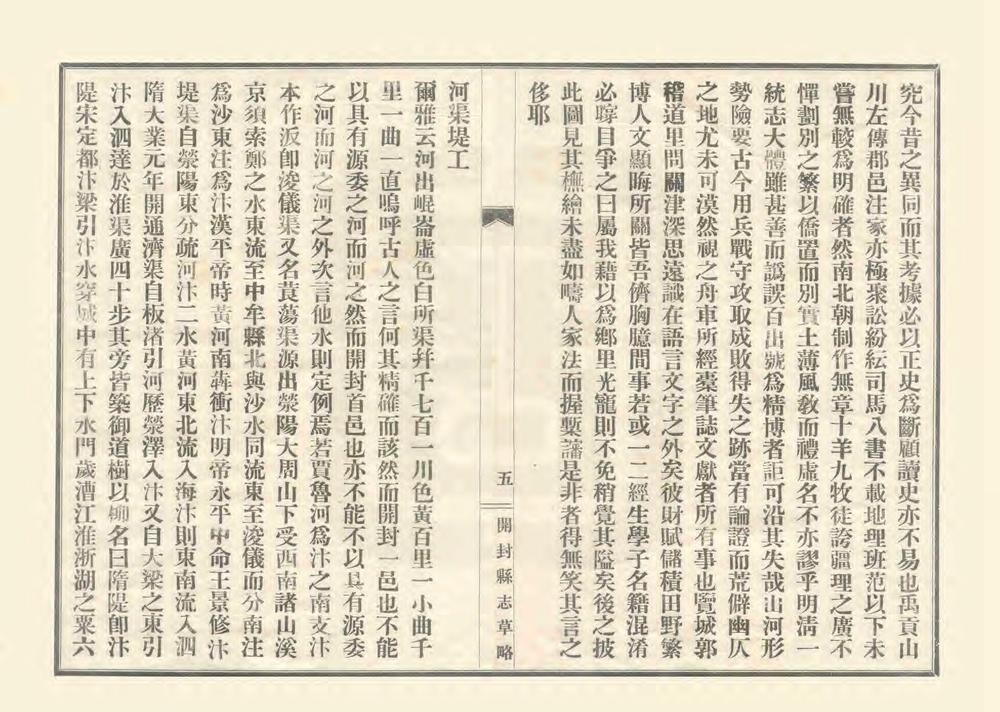 究今昔之異同而其考據必以正史爲斷顧讀史亦不易也禹貢山
川左傳郡邑注家亦極聚訟紛紜司馬八書不載地理班范以下未
嘗無較爲明確者然南北朝制作無章十羊九牧徒誇疆理之廣不
憚劃別之繁以僑置而別實土薄風敎而禮虛名不亦謬乎明清一
統志大體雖甚善而譌誤百出號爲精博者詎可沿其失哉山河形
勢險要古今用兵戰守攻取成敗得失之跡當有論證而荒僻幽仄
之地尤未可漠然視之舟車所經橐筆誌文獻者所有事也覽城郭
稽道里問關津深思遠識在語言文字之外矣彼財賦儲積田野繁
博人文顯晦所關皆吾儕胸臆間事若或一二經生學子名籍混淆
必瞪目爭之曰屬我藉以爲鄕里光寵則不免稍覺其隘矣後之披
此圖見其橅繪未盡如疇人家法而握槧譸是非者得無笑其言之
侈耶
河渠堤工
爾雅云河出崐崙虛色白所渠幷千七百一川色黃百里一小曲千
里一曲一直嗚呼古人之言何其精確而該然而開封一邑也不能
以具有源委之河而河之然而開封首邑也亦不能不以具有源委
之河而河之河之外次言他水則定例焉若賈魯河爲汴之南支汴
本作汳卽浚儀渠又名莨蕩渠源出滎陽大周山下受西南諸山溪
京須索鄭之水東流至中牟縣北與沙水同流東至浚儀而分南注
爲沙東注爲汴漢平帝時黃河南犇衝汴明帝永平中命王景修汴
堤渠自滎陽東分疏河汴二水黃河東北流入海汴則東南流入泗
隋大業元年開通濟渠自板渚引河歷滎澤入汴又自大梁之東引
汴入泗達於淮渠廣四十步其旁皆築御道樹以柳名曰隋隄卽汴
隄宋定都汴梁引汴水穿城中有上下水門歲漕江淮浙湖之粟六
五
開封縣志草略